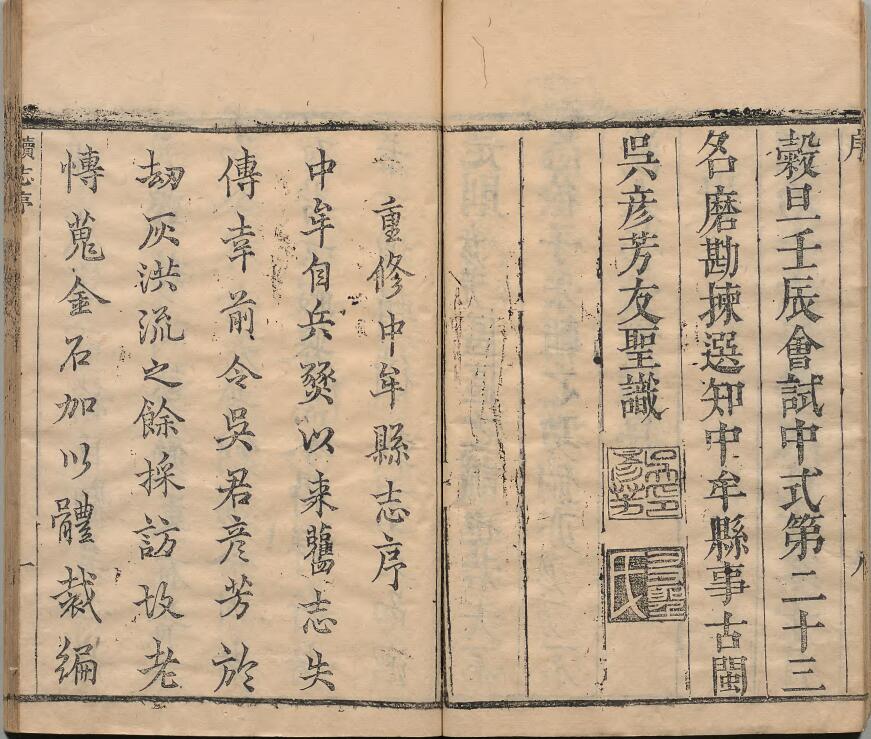 序
穀旦壬辰會試中式第二十三
名磨勘揀選知中牟縣事古閩
吳彥芳友聖識
八
重修中牟縣志序
中牟自兵燹以來舊志失
傳幸前令吳君彥芳於
刼灰洪流之餘採訪故老
慱蒐金石加以體裁編
續志序
一